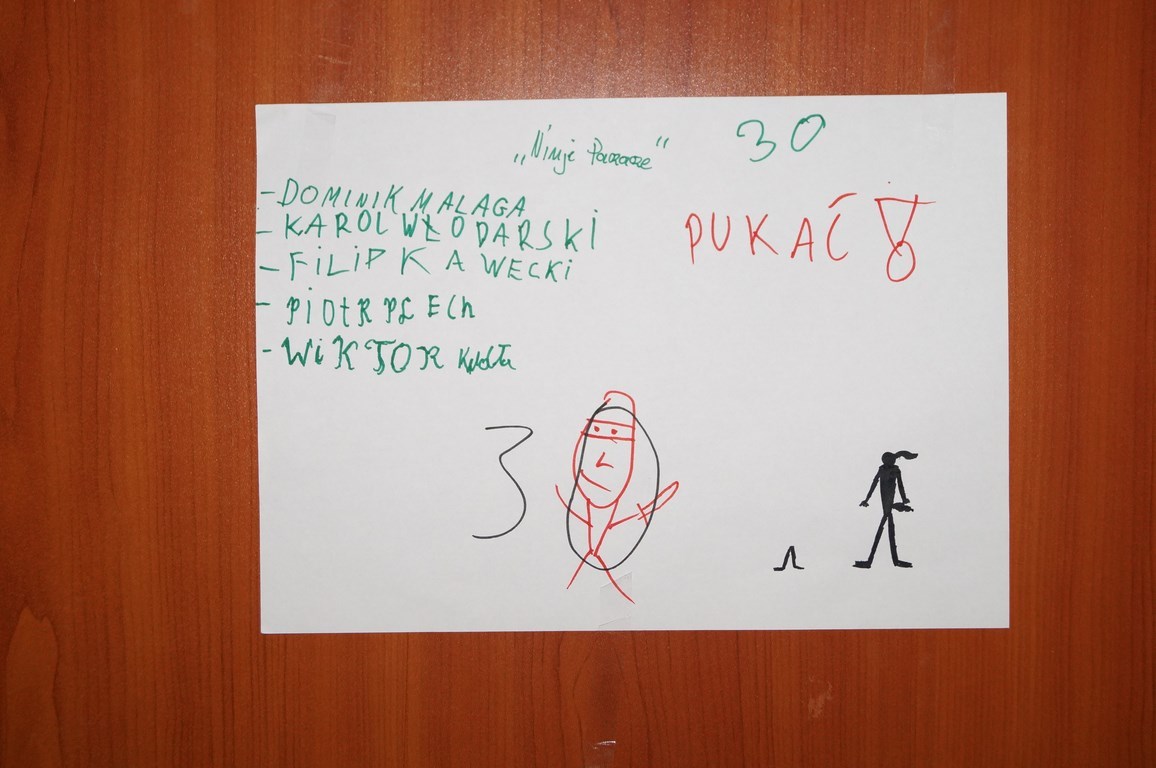 „Ninje
30
- DOMINIK MALAGA
- KAROL WŁODARSKI
- FILIP KAWECKI
- PIOtR PŁECh
- WIKTOR
PUKAĆ!
30